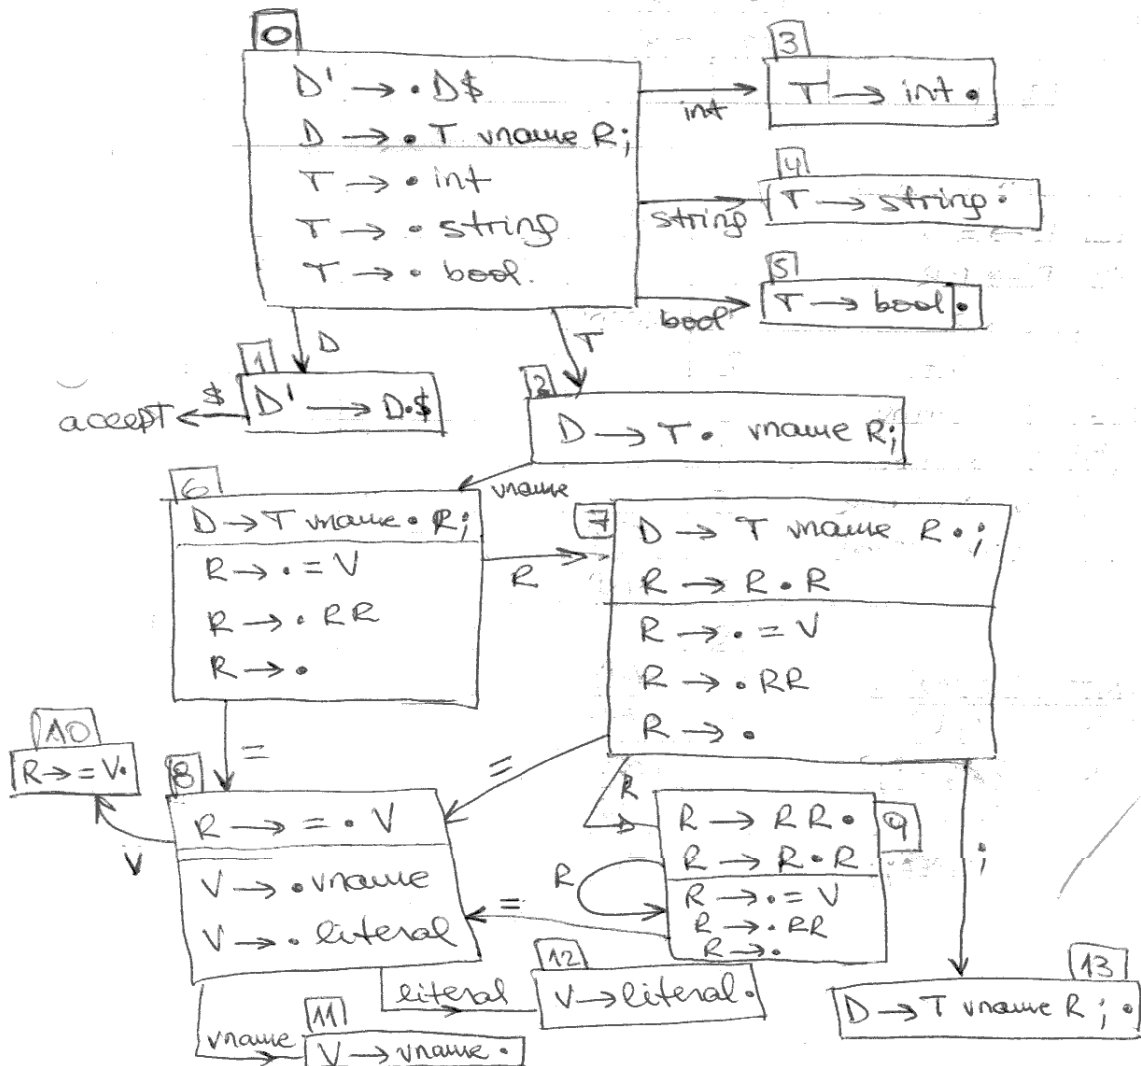 0
D' → • D$
D → • T vname R;
T → • int
T → • string
T → • bool.
int
3
T → int •
string
4
T → string •
bool
5
T → bool •
D
T
1
D' → D•$
$
accept
2
D → T • vname R;
vname
6
D → T vname • R;
R → • = V
R → • RR
R → •
R
7
D → T vname R •;
R → R • R
R → • = V
R → • RR
R → •
=
=
10
R → = V•
V
8
R → = • V
V → • vname
V → • literal
R
9
R → RR •
R → R • R
R → • = V
R → • RR
R → •
R
=
;
literal
12
V → literal •
vname
11
V → vname •
13
D → T vname R ; •